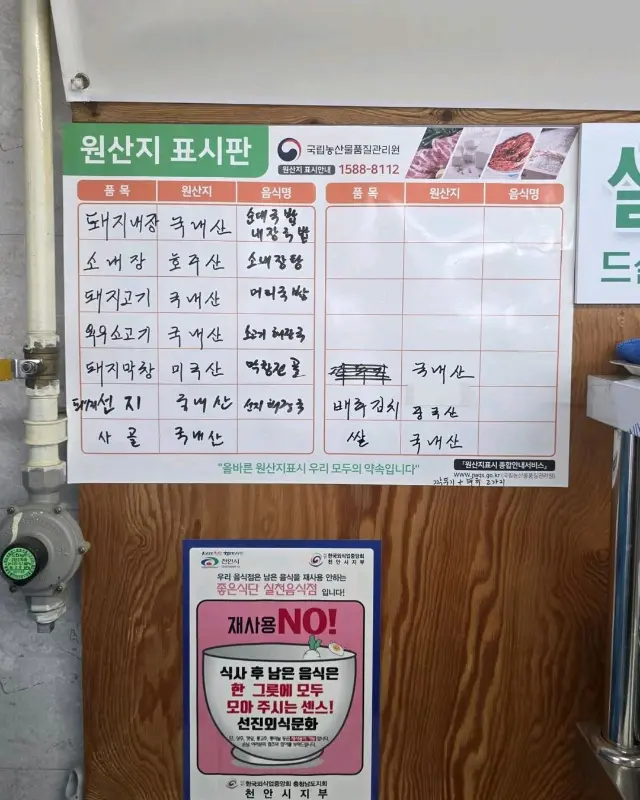 원산지 표시판
국립농산물품질관리원
원산지 표시안내 1588-8112
품 목 원산지 음식명
돼지내장 국내산 순대국밥 내장국밥
소내장 호주산 소내장탕
돼지고기 국내산 머리국밥
육우소고기 국내산 소고기 해장국
돼지막창 미국산 막창전골
돼지선지 국내산 선지해장국
사골 국내산
품 목 원산지 음식명
국내산
배추김치 중국산
쌀 국내산
"올바른 원산지표시 우리 모두의 약속입니다"
「원산지표시 종합안내서비스」
www.naqs.go.kr(국립농산물품질관리원)
드
천안시
한국외식업중앙회
천안시지부
우리 음식점은 남은 음식을 재사용 안하는
좋은식단 실천음식점 입니다!
재사용 NO!
식사 후 남은 음식은
한 그릇에 모두
모아 주시는 센스!
선진외식문화
한국외식업중앙회 충청남도지회
천안시지부